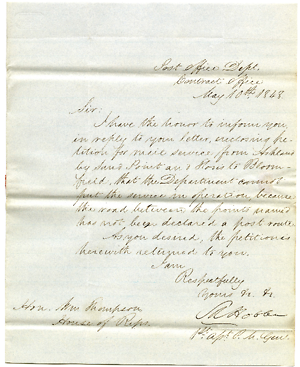 Post Office Dept.
Contract Office
May 10th 1848
Sir:
I have the honor to inform you
in reply to your letter, enclosing pe-
tition for mail service from Ashland
by Point and to Bloom-
field, that the Department cannot
put the service in operation because
the road between the points named
has not been declared a post route.
As you desired, the petition is
herewith returned to you.
I am
Respectfully
Yours &c &c
S R Hobbie
1st Asst. P. M. Genl.
Hon. Wm Thompson
House of Reps.